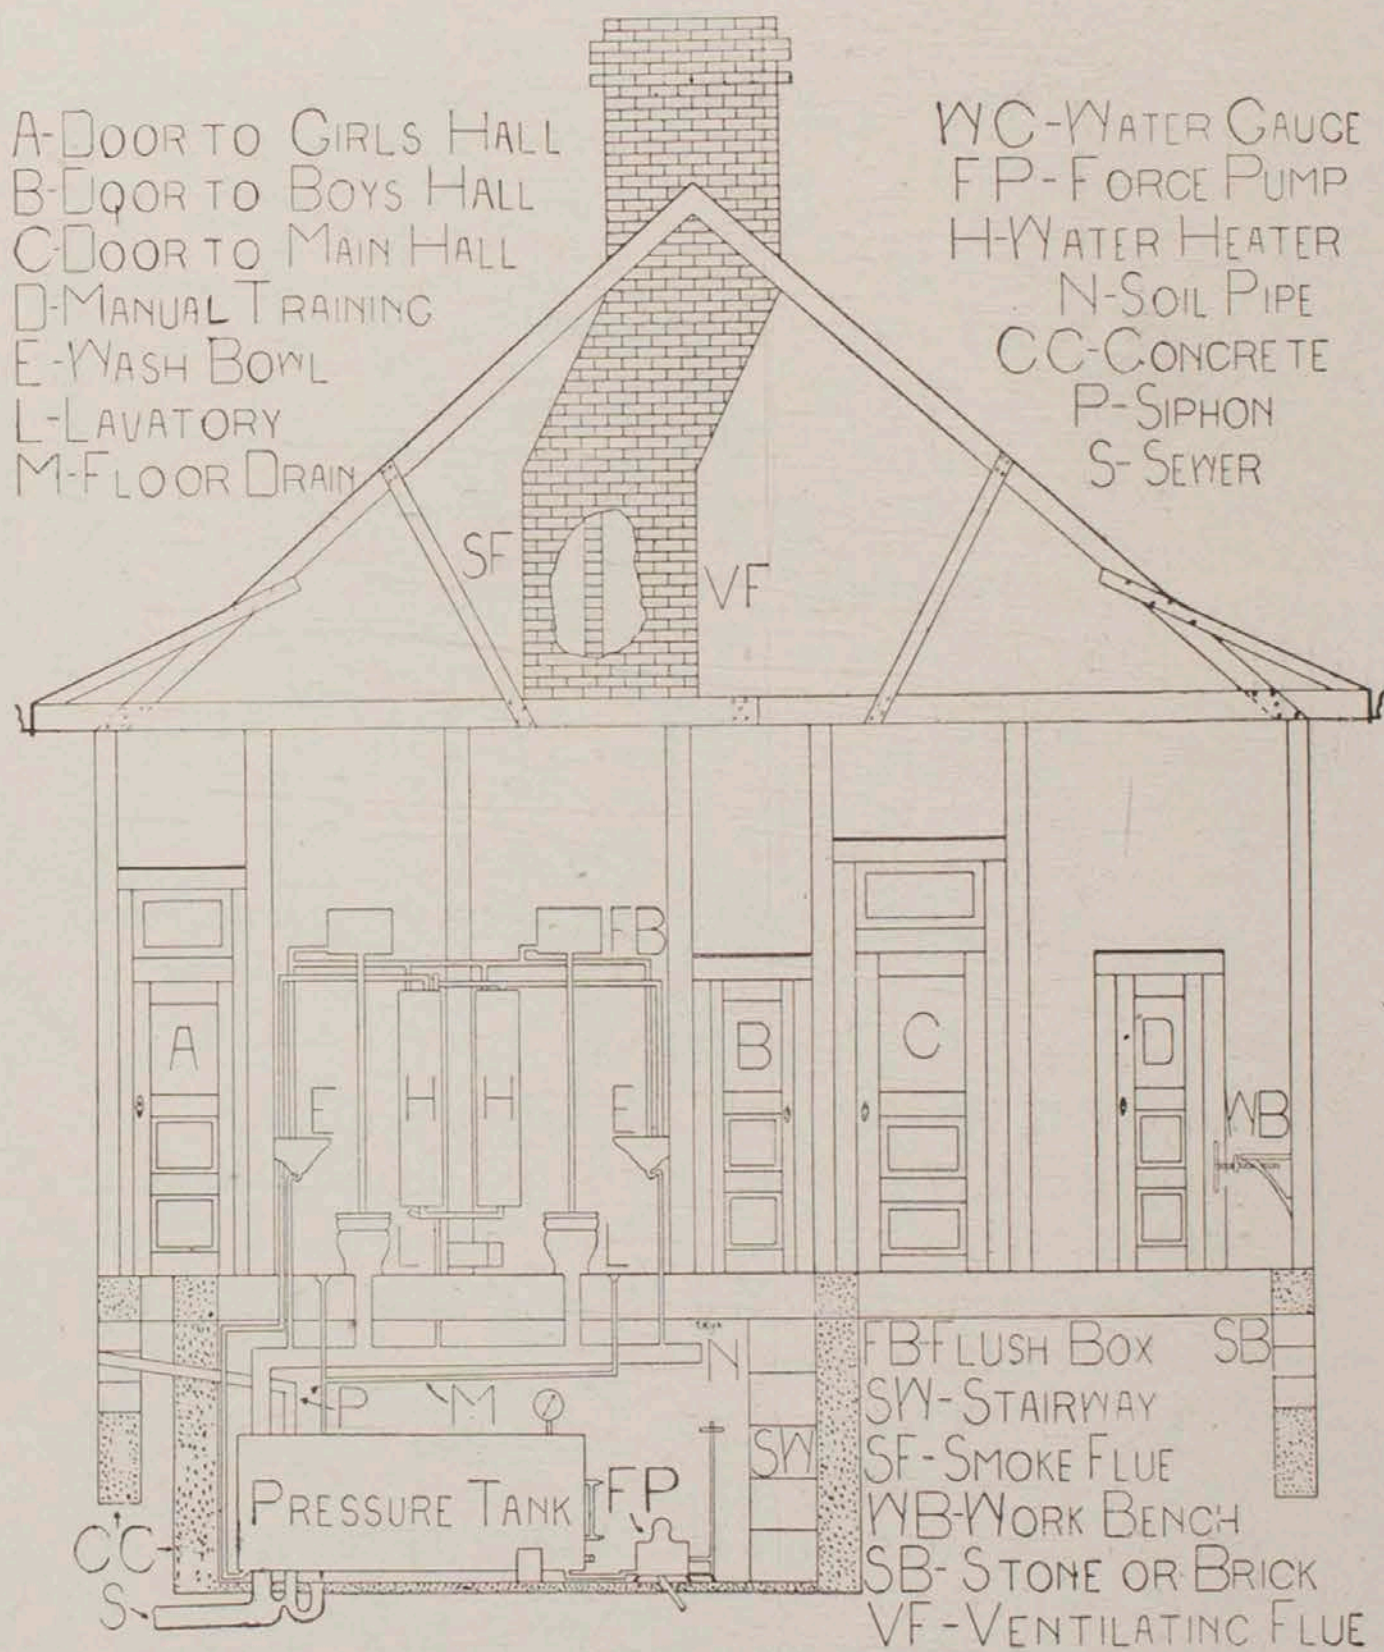 A-DOOR TO GIRLS HALL
B-DOOR TO BOYS HALL
C-DOOR TO MAIN HALL
D-MANUAL TRAINING
E-WASH BOWL
L-LAVATORY
M-FLOOR DRAIN
WG-WATER GAUGE
FP-FORCE PUMP
H-WATER HEATER
N-SOIL PIPE
CC-CONCRETE
P-SIPHON
S-SEWER
SF
VF
FB
A
B
C
D
E
H
H
E
WB
L
L
N
P
M
PRESSURE TANK
FP
SW
CC
S
FB-FLUSH BOX
SB
SW-STAIRWAY
SF-SMOKE FLUE
WB-WORK BENCH
SB-STONE OR BRICK
VF-VENTILATING FLUE